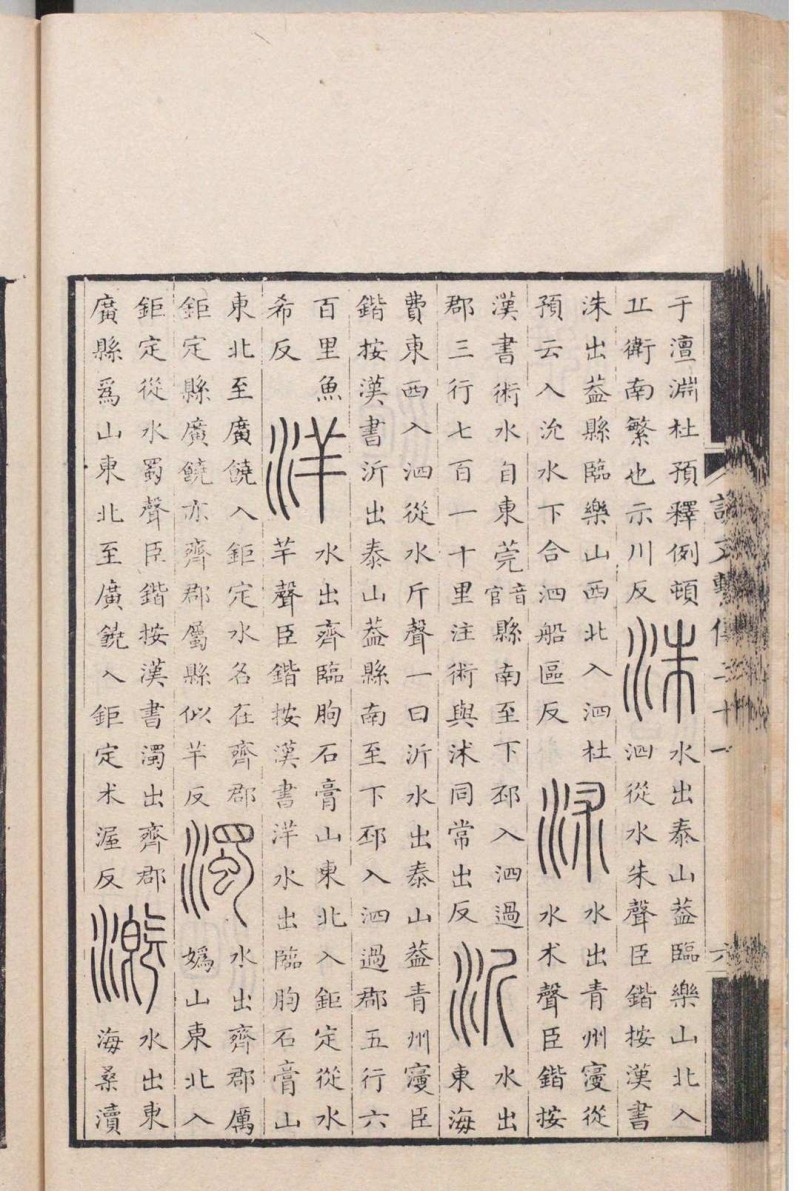 于澶淵杜預釋例頓
丘衛南繁也示川反
洙
水出泰山葢臨樂山北入
泗從水朱聲臣鍇按漢書
洙出葢縣臨樂山西北入泗杜
預云入沇水下合泗船區反
沭
水出青州寖從
水术聲臣鍇按
漢書術水自東莞音官縣南至下邳入泗過
郡三行七百一十里注術與沭同常出反
沂
水出
東海
費東西入泗從水斤聲一曰沂水出泰山葢青州寖臣
鍇按漢書沂出泰山葢縣南至下邳入泗過郡五行六
百里魚
希反
洋
水出齊臨朐石膏山東北入鉅定從水
羊聲臣鍇按漢書洋水出臨朐石膏山
東北至廣饒入鉅定水名在齊郡
鉅定縣廣饒亦齊郡屬縣似羊反
濁
水出齊郡厲
媯山東北入
鉅定從水蜀聲臣鍇按漢書濁出齊郡
廣縣爲山東北至廣饒入鉅定术渥反
溉
水出東
海桑瀆
說文繫傳二十一
六